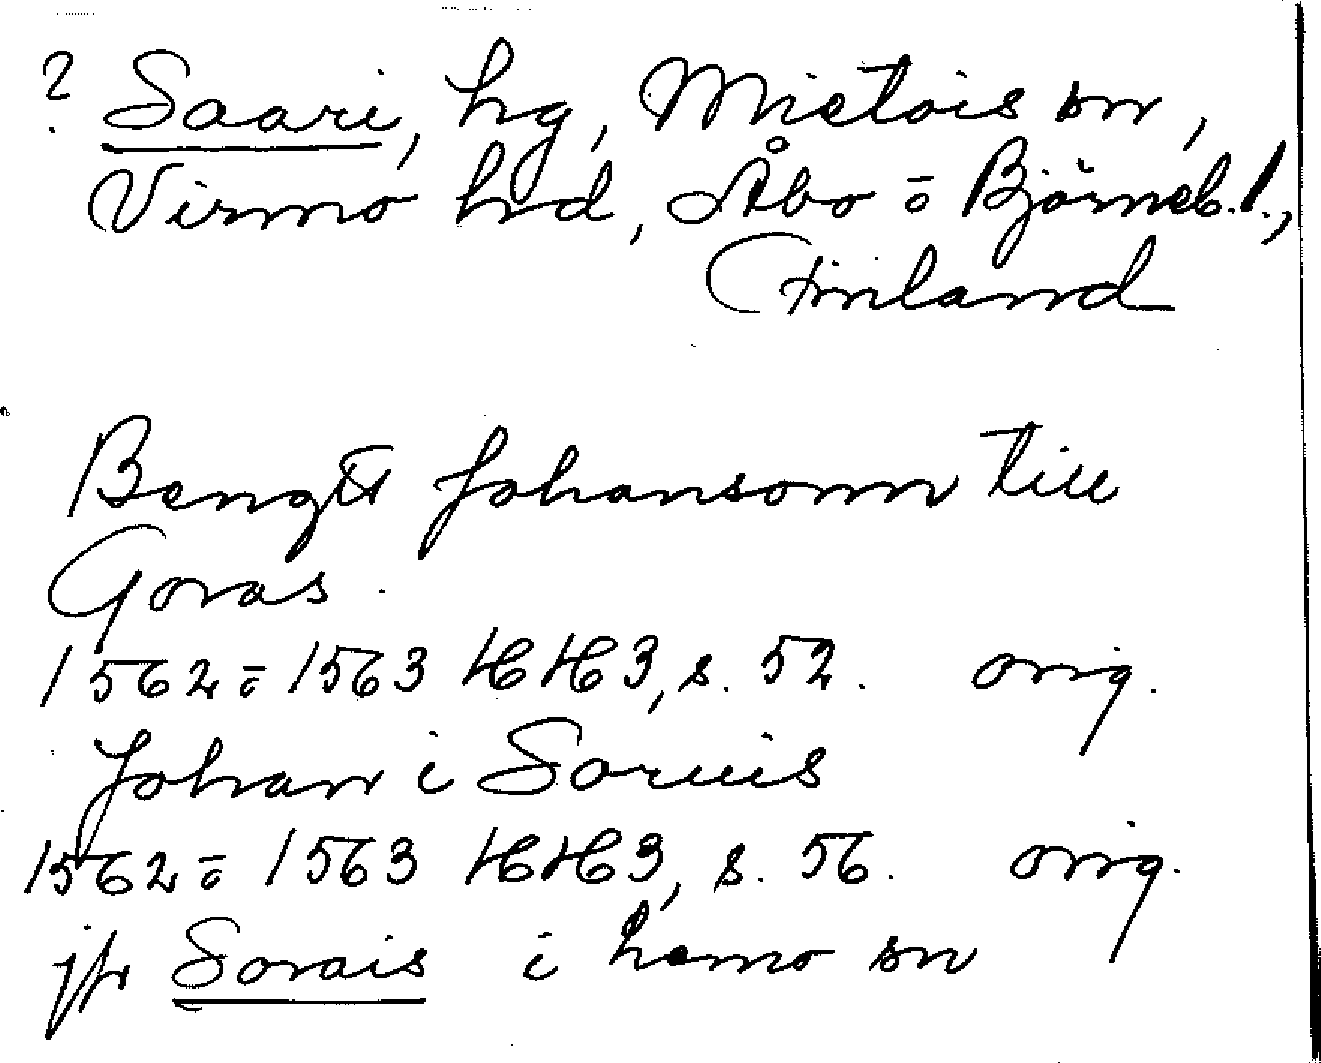 ? Saari, hg, Mietois sn,
Virmo hd, Åbo o Björneb. l.,
Finland
Bengtt Johansonn till
Goras.
1562 o 1563 HH3, s. 52. orig.
Johan i Soruis
1562 o 1563 HH3, s. 56. orig.
jfr Sorais i Lemo sn